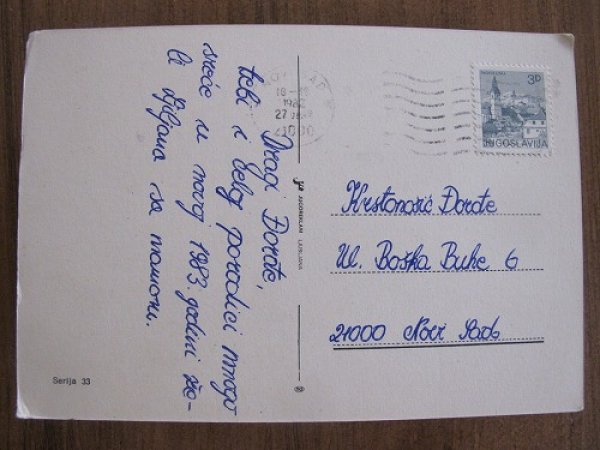 Dragi Đorđe,
tebi i celoj porodici mnogo
sreće u novoj 1983. godini že-
li Ljiljana sa mamom.
18-
1982
27
21000
3D
JUGOSLAVIJA
JUGOREKLAM LJUBLJANA
Krstonošić Đorđe
Ul. Boška Buhe 6
21000 Novi Sad
Serija 33